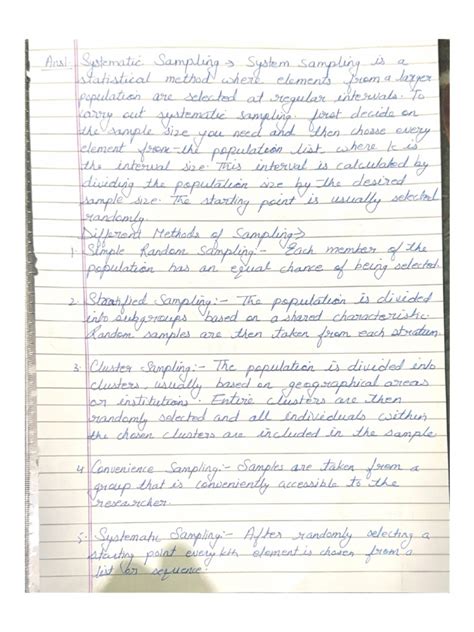 Ans1. Systematic Sampling → System sampling is a
statistical method where elements from a larger
population are selected at regular intervals. To
carry out systematic sampling, first decide on
the sample size you need and then choose every
element from the population list, where k is
the interval size. This interval is calculated by
dividing the population size by the desired
sample size. The starting point is usually selected
randomly.
Different Methods of Sampling →
1. Simple Random Sampling:- Each member of the
population has an equal chance of being selected.
2. Stratified Sampling:- The population is divided
into subgroups based on a shared characteristic.
Random samples are then taken from each stratum
3. Cluster Sampling:- The population is divided into
clusters, usually based on geographical areas
or institutions. Entire clusters are then
randomly selected and all individuals within
the chosen clusters are included in the sample
4. Convenience Sampling:- Samples are taken from a
group that is conveniently accessible to the
researcher.
5. Systematic Sampling:- After randomly selecting a
starting point every kth element is chosen from a
list or sequence.